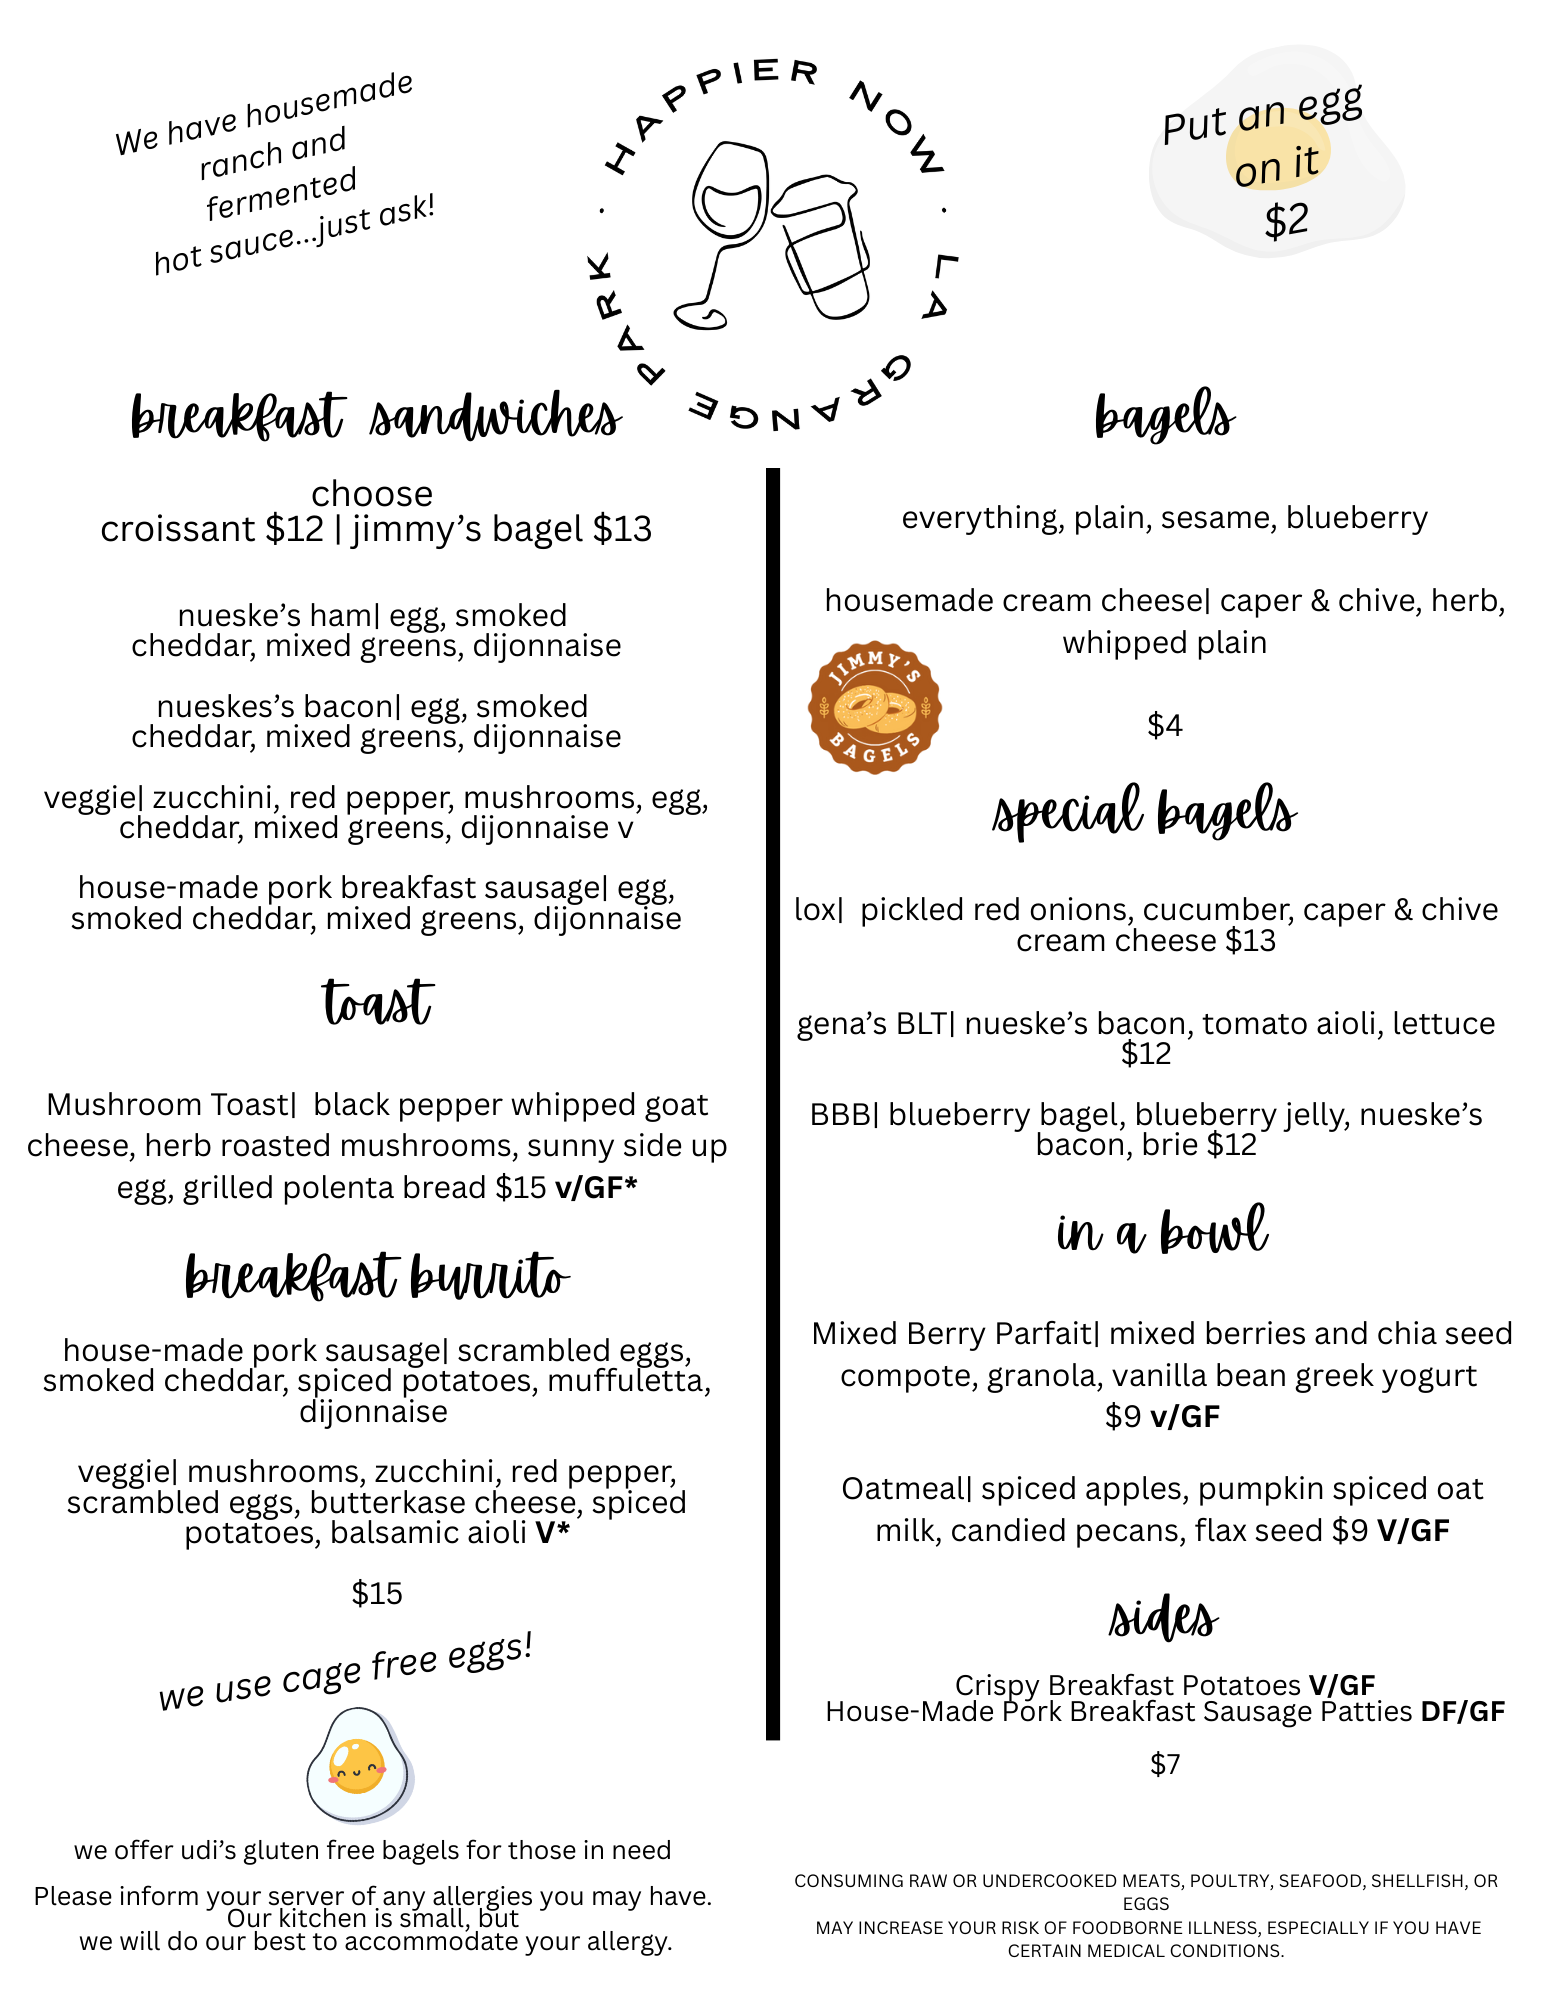 We have housemade
ranch and
fermented
hot sauce...just ask!
HAPPIER NOW · LA GRANGE PARK ·
Put an egg
on it
$2
breakfast sandwiches
choose
croissant $12 | jimmy's bagel $13
nueske's ham| egg, smoked
cheddar, mixed greens, dijonnaise
nueskes's bacon| egg, smoked
cheddar, mixed greens, dijonnaise
veggie| zucchini, red pepper, mushrooms, egg,
cheddar, mixed greens, dijonnaise v
house-made pork breakfast sausage| egg,
smoked cheddar, mixed greens, dijonnaise
toast
Mushroom Toast| black pepper whipped goat
cheese, herb roasted mushrooms, sunny side up
egg, grilled polenta bread $15 v/GF*
breakfast burrito
house-made pork sausage| scrambled eggs,
smoked cheddar, spiced potatoes, muffuletta,
dijonnaise
veggie| mushrooms, zucchini, red pepper,
scrambled eggs, butterkase cheese, spiced
potatoes, balsamic aioli V*
$15
we use cage free eggs!
we offer udi's gluten free bagels for those in need
Please inform your server of any allergies you may have.
Our kitchen is small, but
we will do our best to accommodate your allergy.
bagels
everything, plain, sesame, blueberry
housemade cream cheese| caper & chive, herb,
whipped plain
JIMMY'S
BAGELS
$4
special bagels
lox| pickled red onions, cucumber, caper & chive
cream cheese $13
gena's BLT| nueske's bacon, tomato aioli, lettuce
$12
BBB| blueberry bagel, blueberry jelly, nueske's
bacon, brie $12
in a bowl
Mixed Berry Parfait| mixed berries and chia seed
compote, granola, vanilla bean greek yogurt
$9 v/GF
Oatmeal| spiced apples, pumpkin spiced oat
milk, candied pecans, flax seed $9 V/GF
sides
Crispy Breakfast Potatoes V/GF
House-Made Pork Breakfast Sausage Patties DF/GF
$7
CONSUMING RAW OR UNDERCOOKED MEATS, POULTRY, SEAFOOD, SHELLFISH, OR
EGGS
MAY INCREASE YOUR RISK OF FOODBORNE ILLNESS, ESPECIALLY IF YOU HAVE
CERTAIN MEDICAL CONDITIONS.